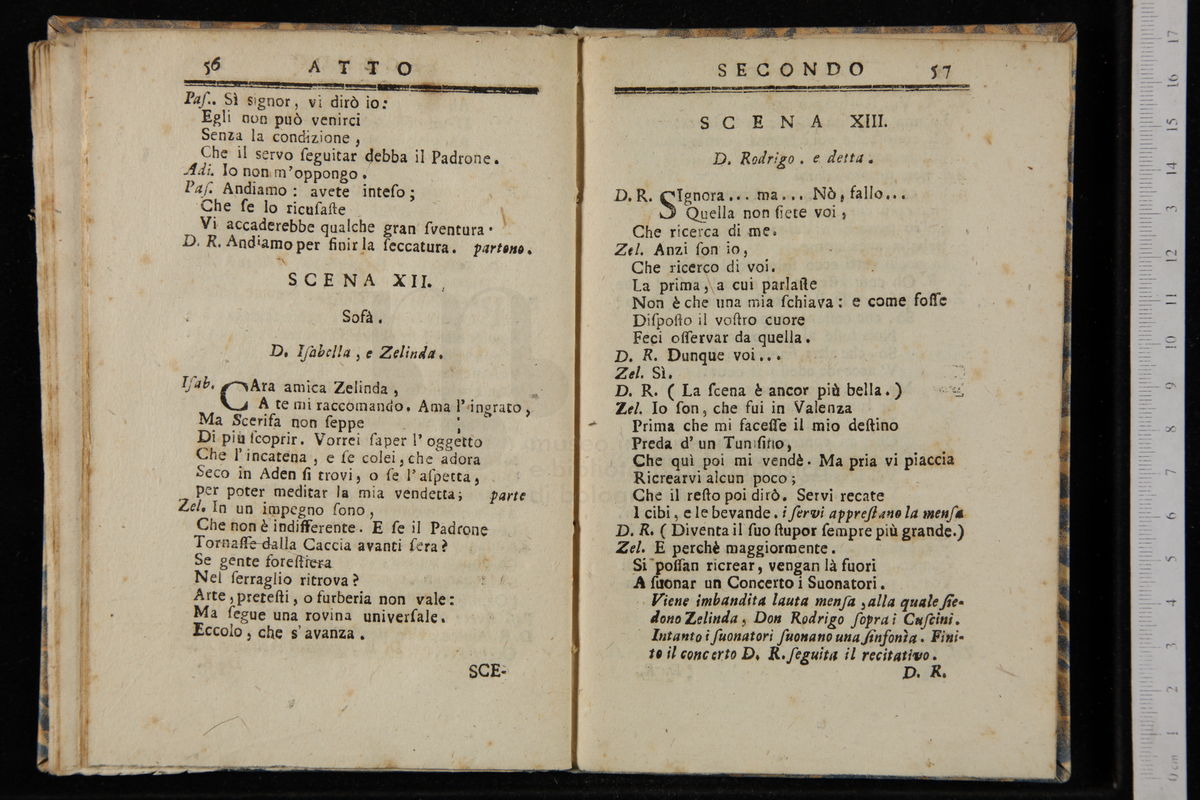 56 ATTO
Paſ.. Sì signor, vi dirò io:
Egli non può venirci
Senza la condizione,
Che il servo ſeguitar debba il Padrone.
Adi. Io non m'oppongo.
Paſ. Andiamo: avete inteſo;
Che ſe lo ricuſaſte
Vi accaderebbe qualche gran ſventura.
D. R. Andiamo per finir la ſeccatura. partono.
SCENA XII.
Sofà.
D. Iſabella, e Zelinda.
Iſab. CAra amica Zelinda,
A te mi raccomando. Ama l'ingrato,
Ma Scerifa non ſeppe
Di più ſcoprir. Vorrei ſaper l'oggetto
Che l'incatena, e ſe colei, che adora
Seco in Aden ſi trovi, o ſe l'aſpetta,
per poter meditar la mia vendetta; parte
Zel. In un impegno ſono,
Che non è indifferente. E ſe il Padrone
Tornaſſe dalla Caccia avanti ſera?
Se gente foreſtiera
Nel ſerraglio ritrova?
Arte, preteſti, o furberia non vale:
Ma ſegue una rovina univerſale.
Eccolo, che s'avanza.
SCE-
SECONDO 57
SCENA XIII.
D. Rodrigo. e detta.
D. R. SIgnora... ma... Nò, fallo...
Quella non ſiete voi,
Che ricerca di me.
Zel. Anzi ſon io,
Che ricerco di voi.
La prima, a cui parlaſte
Non è che una mia ſchiava: e come foſſe
Diſpoſto il voſtro cuore
Feci oſſervar da quella.
D. R. Dunque voi...
Zel. Sì.
D. R. ( La ſcena è ancor più bella. )
Zel. Io ſon, che fui in Valenza
Prima che mi faceſſe il mio deſtino
Preda d'un Tuniſino,
Che quì poi mi vendè. Ma pria vi piaccia
Ricrearvi alcun poco;
Che il reſto poi dirò. Servi recate
I cibi, e le bevande. i ſervi appreſtano la menſa
D. R. ( Diventa il ſuo ſtupor ſempre più grande.)
Zel. E perchè maggiormente.
Si poſſan ricrear, vengan là fuori
A ſuonar un Concerto i Suonatori.
Viene imbandita lauta menſa, alla quale ſie-
dono Zelinda, Don Rodrigo ſopra i Cuſcini.
Intanto i ſuonatori ſuonano una ſinfonìa. Fini-
to il concerto D. R. ſeguita il recitativo.
D. R.